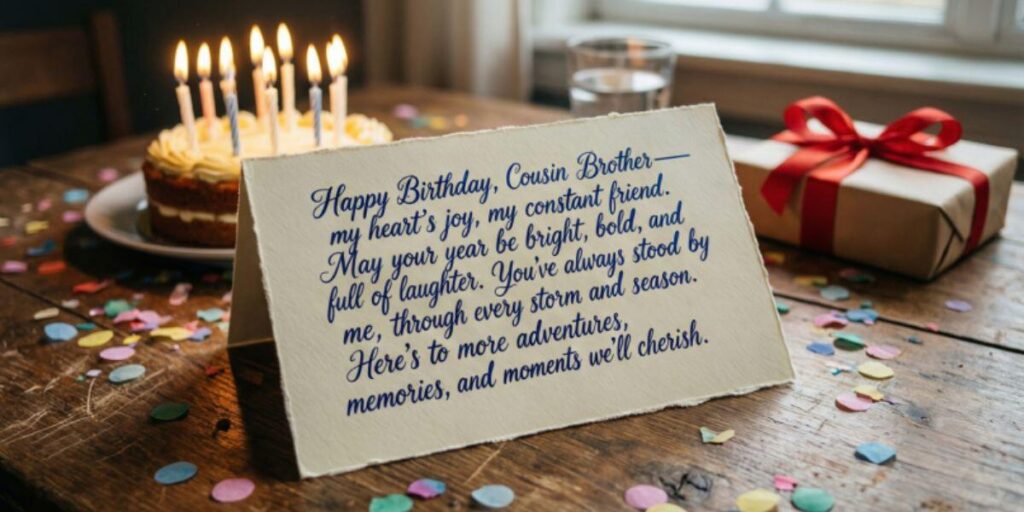 Happy Birthday, Cousin Brother—
my heart's joy, my constant friend.
May your year be bright, bold, and
full of laughter. You've always stood by
me, through every storm and season.
Here's to more adventures,
memories, and moments we'll cherish.